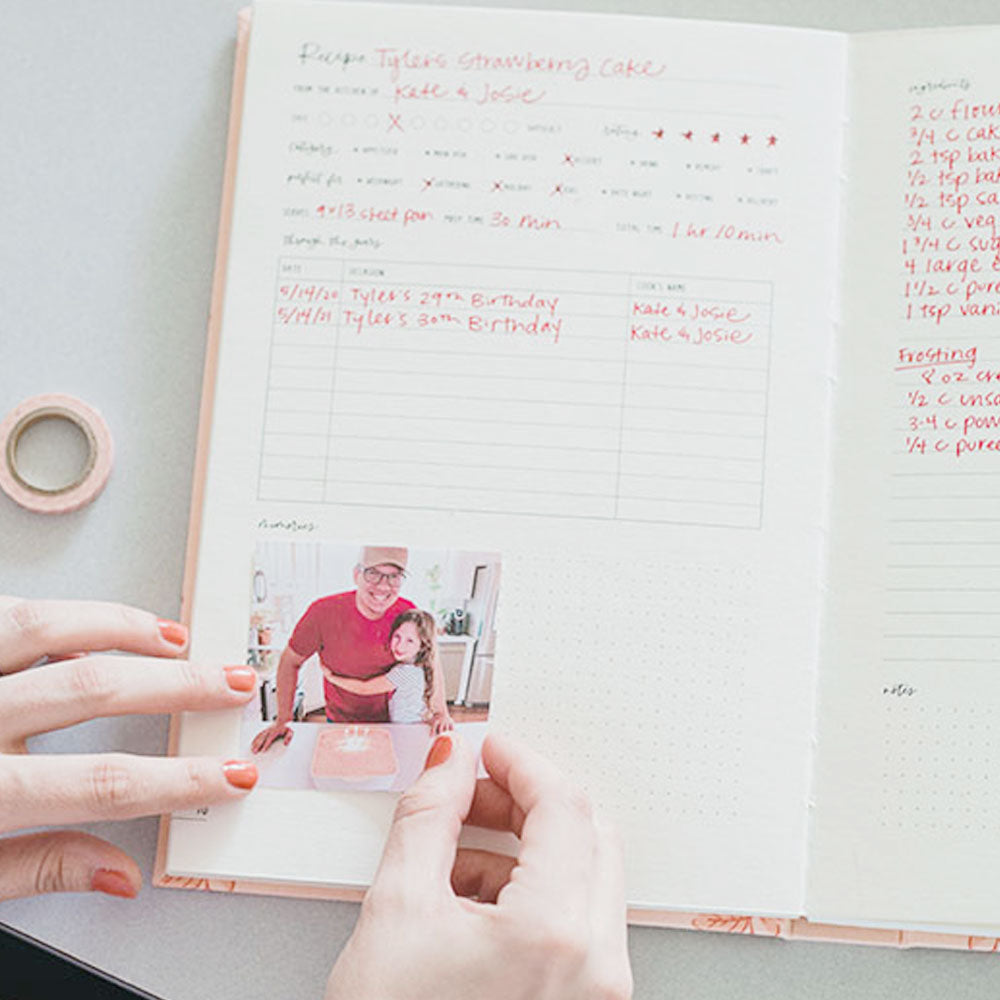 Recipe Tyler's Strawberry Cake
FROM THE KITCHEN OF Kate & Josie
EASY X DIFFICULT rating: ★ ★ ★ ★ ★
category: • APPETIZER • MAIN DISH • SIDE DISH X DESSERT • DRINK
perfect for: • WEEKNIGHT X GATHERING X HOLIDAY X • DATE NIGHT
SERVES 9x13 sheet pan PREP TIME 30 min TOTAL TIME 1 hr 10 min
through the years
DATE OCCASION COOK'S NAME
5/14/20 Tyler's 29th Birthday Kate & Josie
5/14/21 Tyler's 30th Birthday Kate & Josie
memories
ingredients
2 c flou
3/4 c cak
2 tsp bak
1/2 tsp bak
1/2 tsp sa
3/4 c veg
1 3/4 c sug
4 large e
1 1/2 c pure
1 tsp vani
Frosting
8 oz cre
1/2 c unsa
3-4 c pow
1/4 c puree
notes